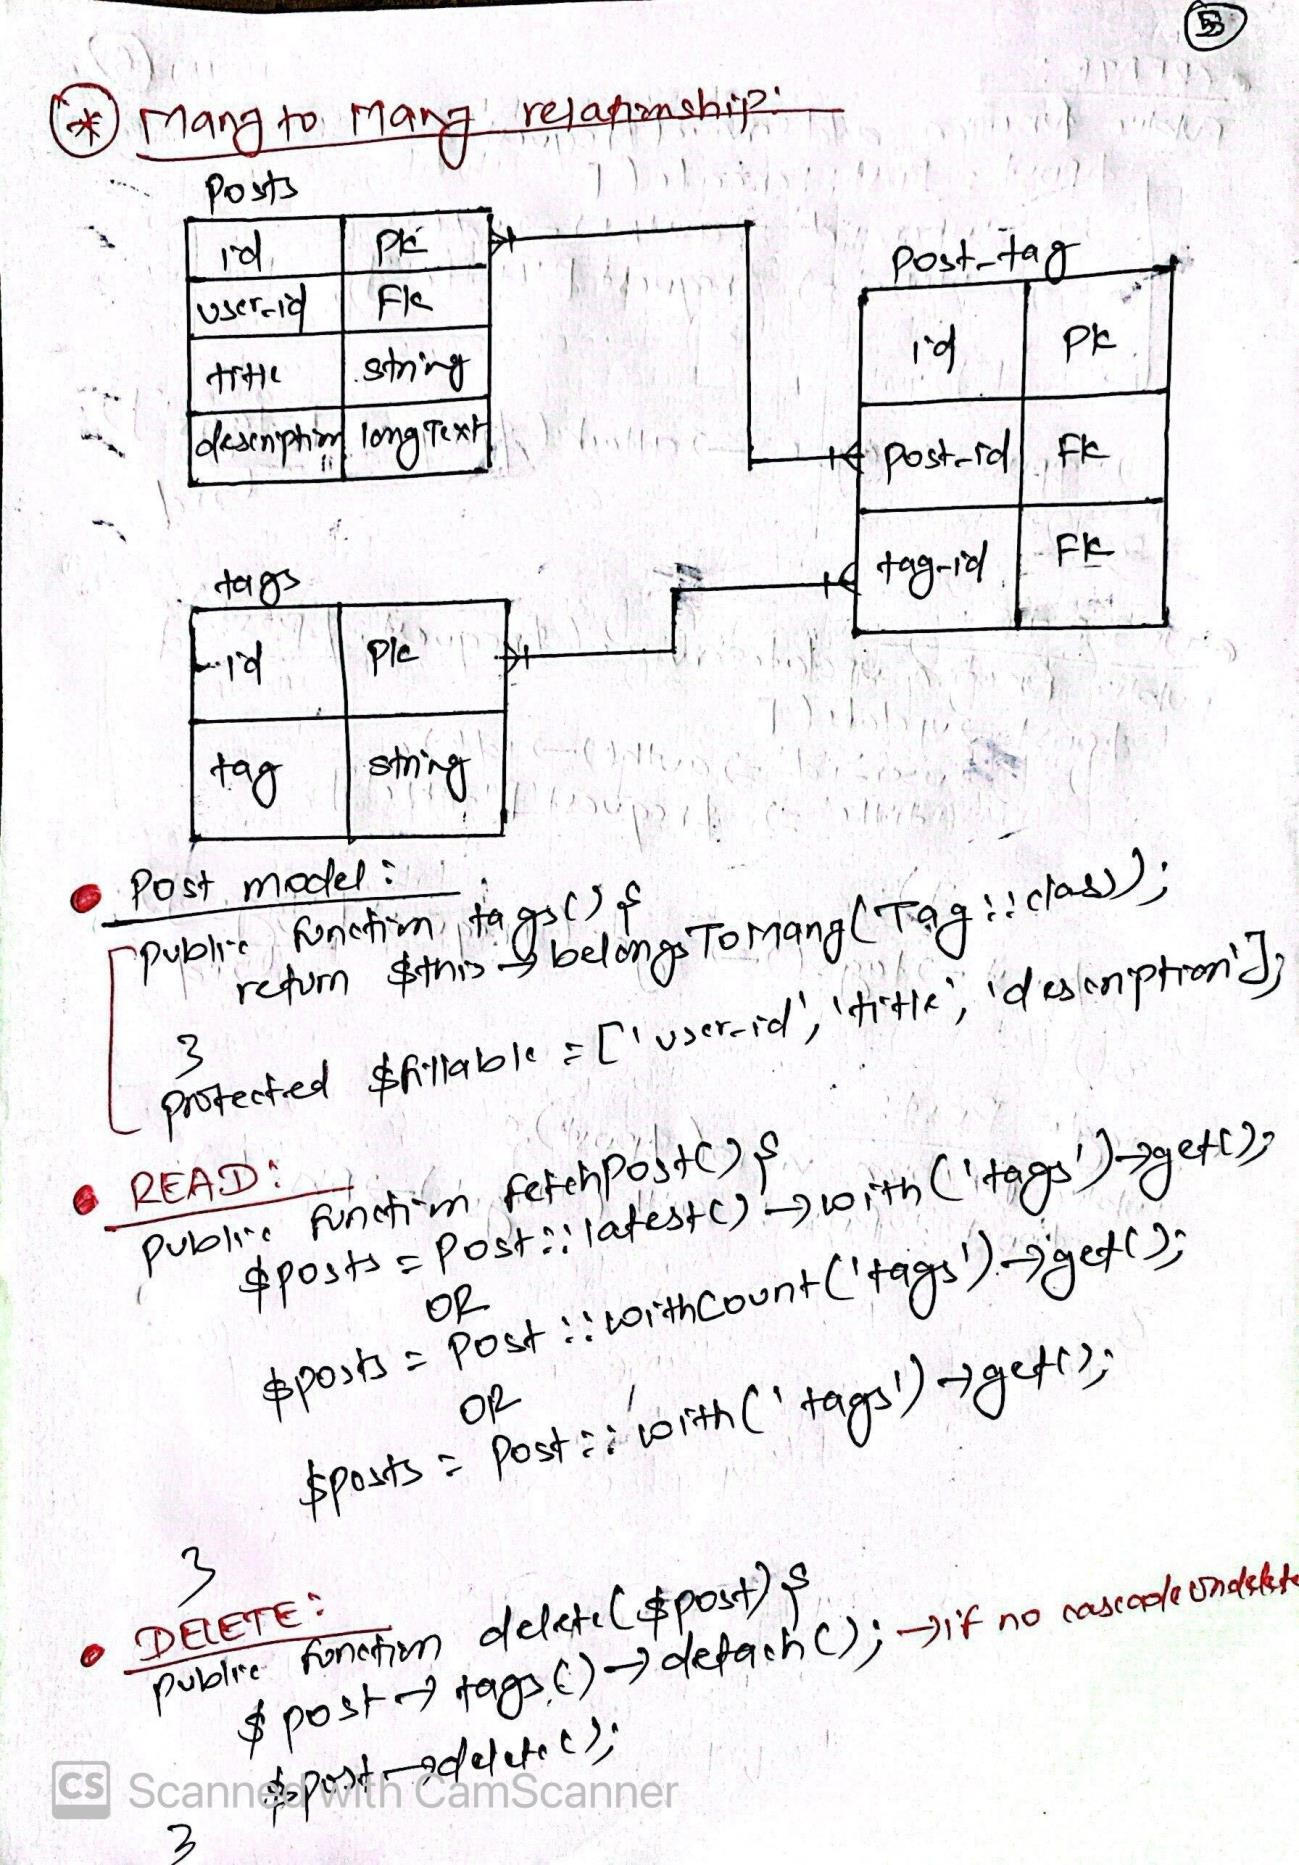 5
* Many to Many relationship:
Posts
id PK
user_id FK
title string
description longText
Post_tag
id PK
post_id FK
tag_id FK
tags
id PK
tag string
Post model:
public function tags() {
return $this→belongsToMany(Tag::class);
}
protected $fillable = ['user_id', 'title', 'description'];
READ:
public function fetchPost() {
$posts = Post::latest()→with('tags')→get();
OR
$posts = Post::withCount('tags')→get();
OR
$posts = Post::with('tags')→get();
}
DELETE:
public function delete($post) {
$post→tags()→detach(); →if no cascadeOndelete
$post→delete();
}
CS Scanned with CamScanner